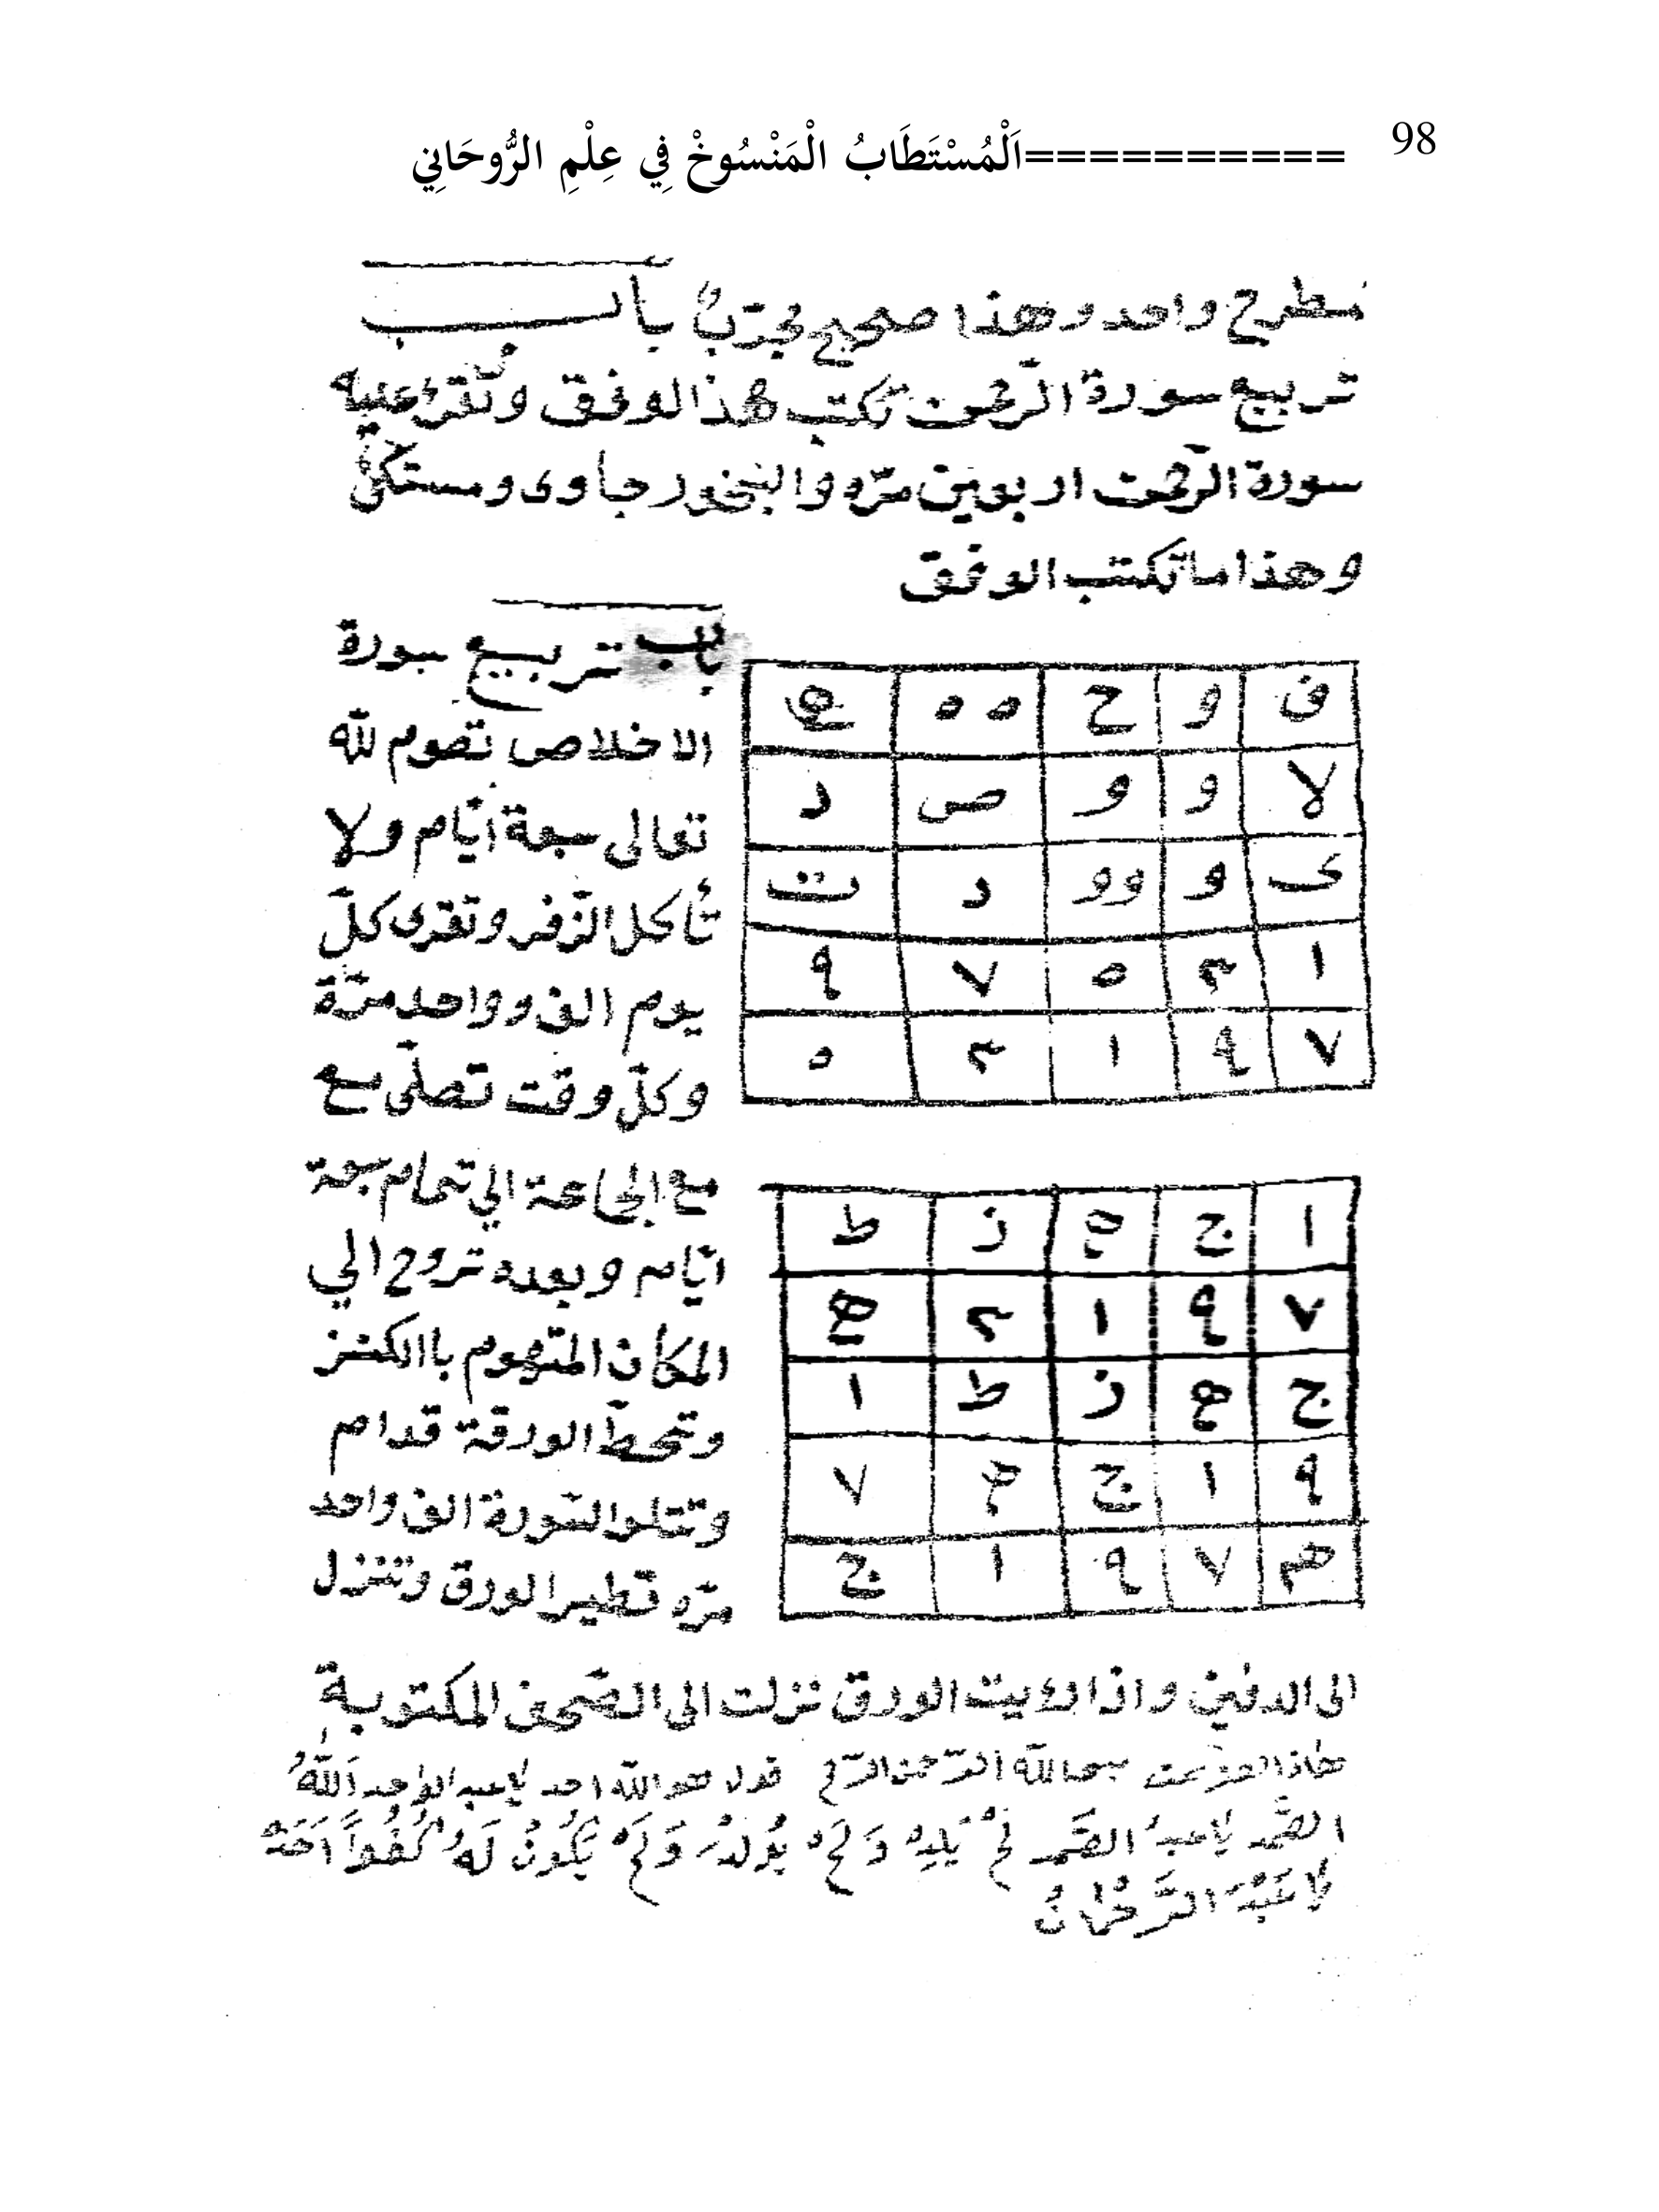 98
==========اَلْمُسْتَطَابُ الْمَنْسُوخْ فِي عِلْمِ الرُّوحَانِي
مطرح واحد وهذا صحيح مجرّبٌ باب
تربيع سورة الرّحمن تكتب هذا لوفق وتقرئ عليه
سورة الرّحمن اربعين مرّه والبخور جاوى ومستكى
وهذا ما تكتب الوفق
ف و ح ه ه
لا و و ص د
ى و وو د ت
١ ٣ ٥ ٧ ٩
٧ ٩ ١ ٣ ٥
باب تربيع سورة
الاخلاص تصوم لله
تعالى سبعة ايّام ولا
تأكل الزّفر وتقرى كلّ
يوم الف وواحد مرّة
وكلّ وقت تصلّى مع
مع الجاعة الي تمام سبعة
ايّام وبعده تروح الي
المكان المتهوم باالكنز
وتحطّ الورقة قدام
وتتلوا السّورة الف واحد
مرّه تطير الورق وتنزل
ا ج ه ز ط
٧ ٩ ١ ٣ ه
ج ه ز ط ا
٩ ١ ج ه ٧
ه ٧ ٩ ١ ج
الى الدفين واذا رءيت الورق نزلت الى الصّحف المكتوبة
بسم الله الرّحمن الرّحيم قول هو الله احد يا عبد الواحد اَللّٰهُ
الصَّمد يا عبدُ الصَّمد لَمْ يَلِدْ وَلَمْ يُولَدْ وَلَمْ يَكُونْ لَهُ كُفُواً اَحَدْ
يا عَبْدَ الرَّحْمَانْ